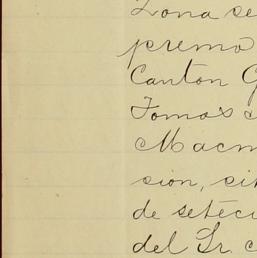 Zona se
premo
Canton G
Tomas
Macm
sion, sit
de seteci
del Sr. c